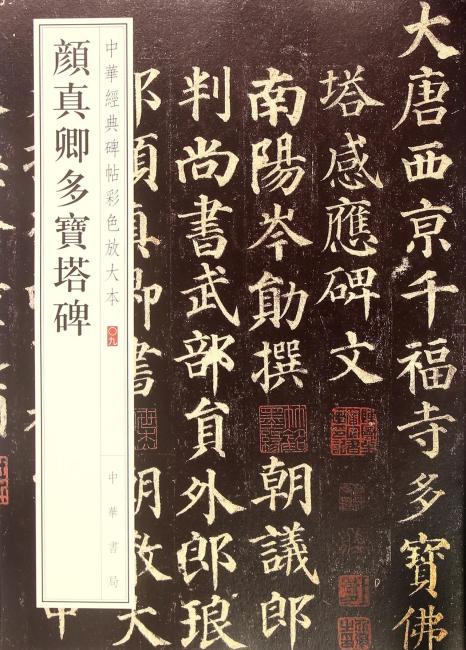 顏真卿多寶塔碑
中華經典碑帖彩色放大本
〇九
中華書局
大唐西京千福寺多寶佛
塔感應碑文
南陽岑勛撰 朝議郎
判尚書武部員外郎琅
邪顏真卿書 朝散大